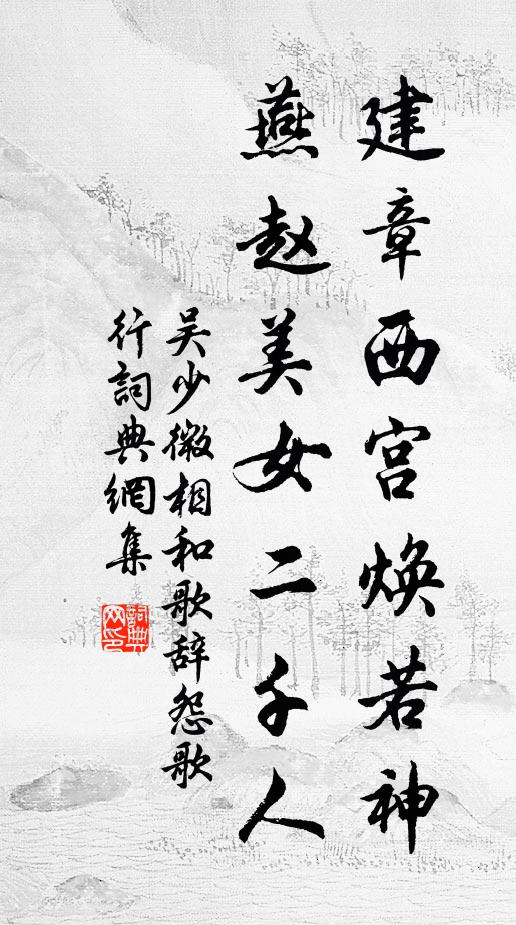 建章西宫焕若神
燕赵美女二千人
吴少微相和歌辞怨歌
行詞典網集
詞典
网印